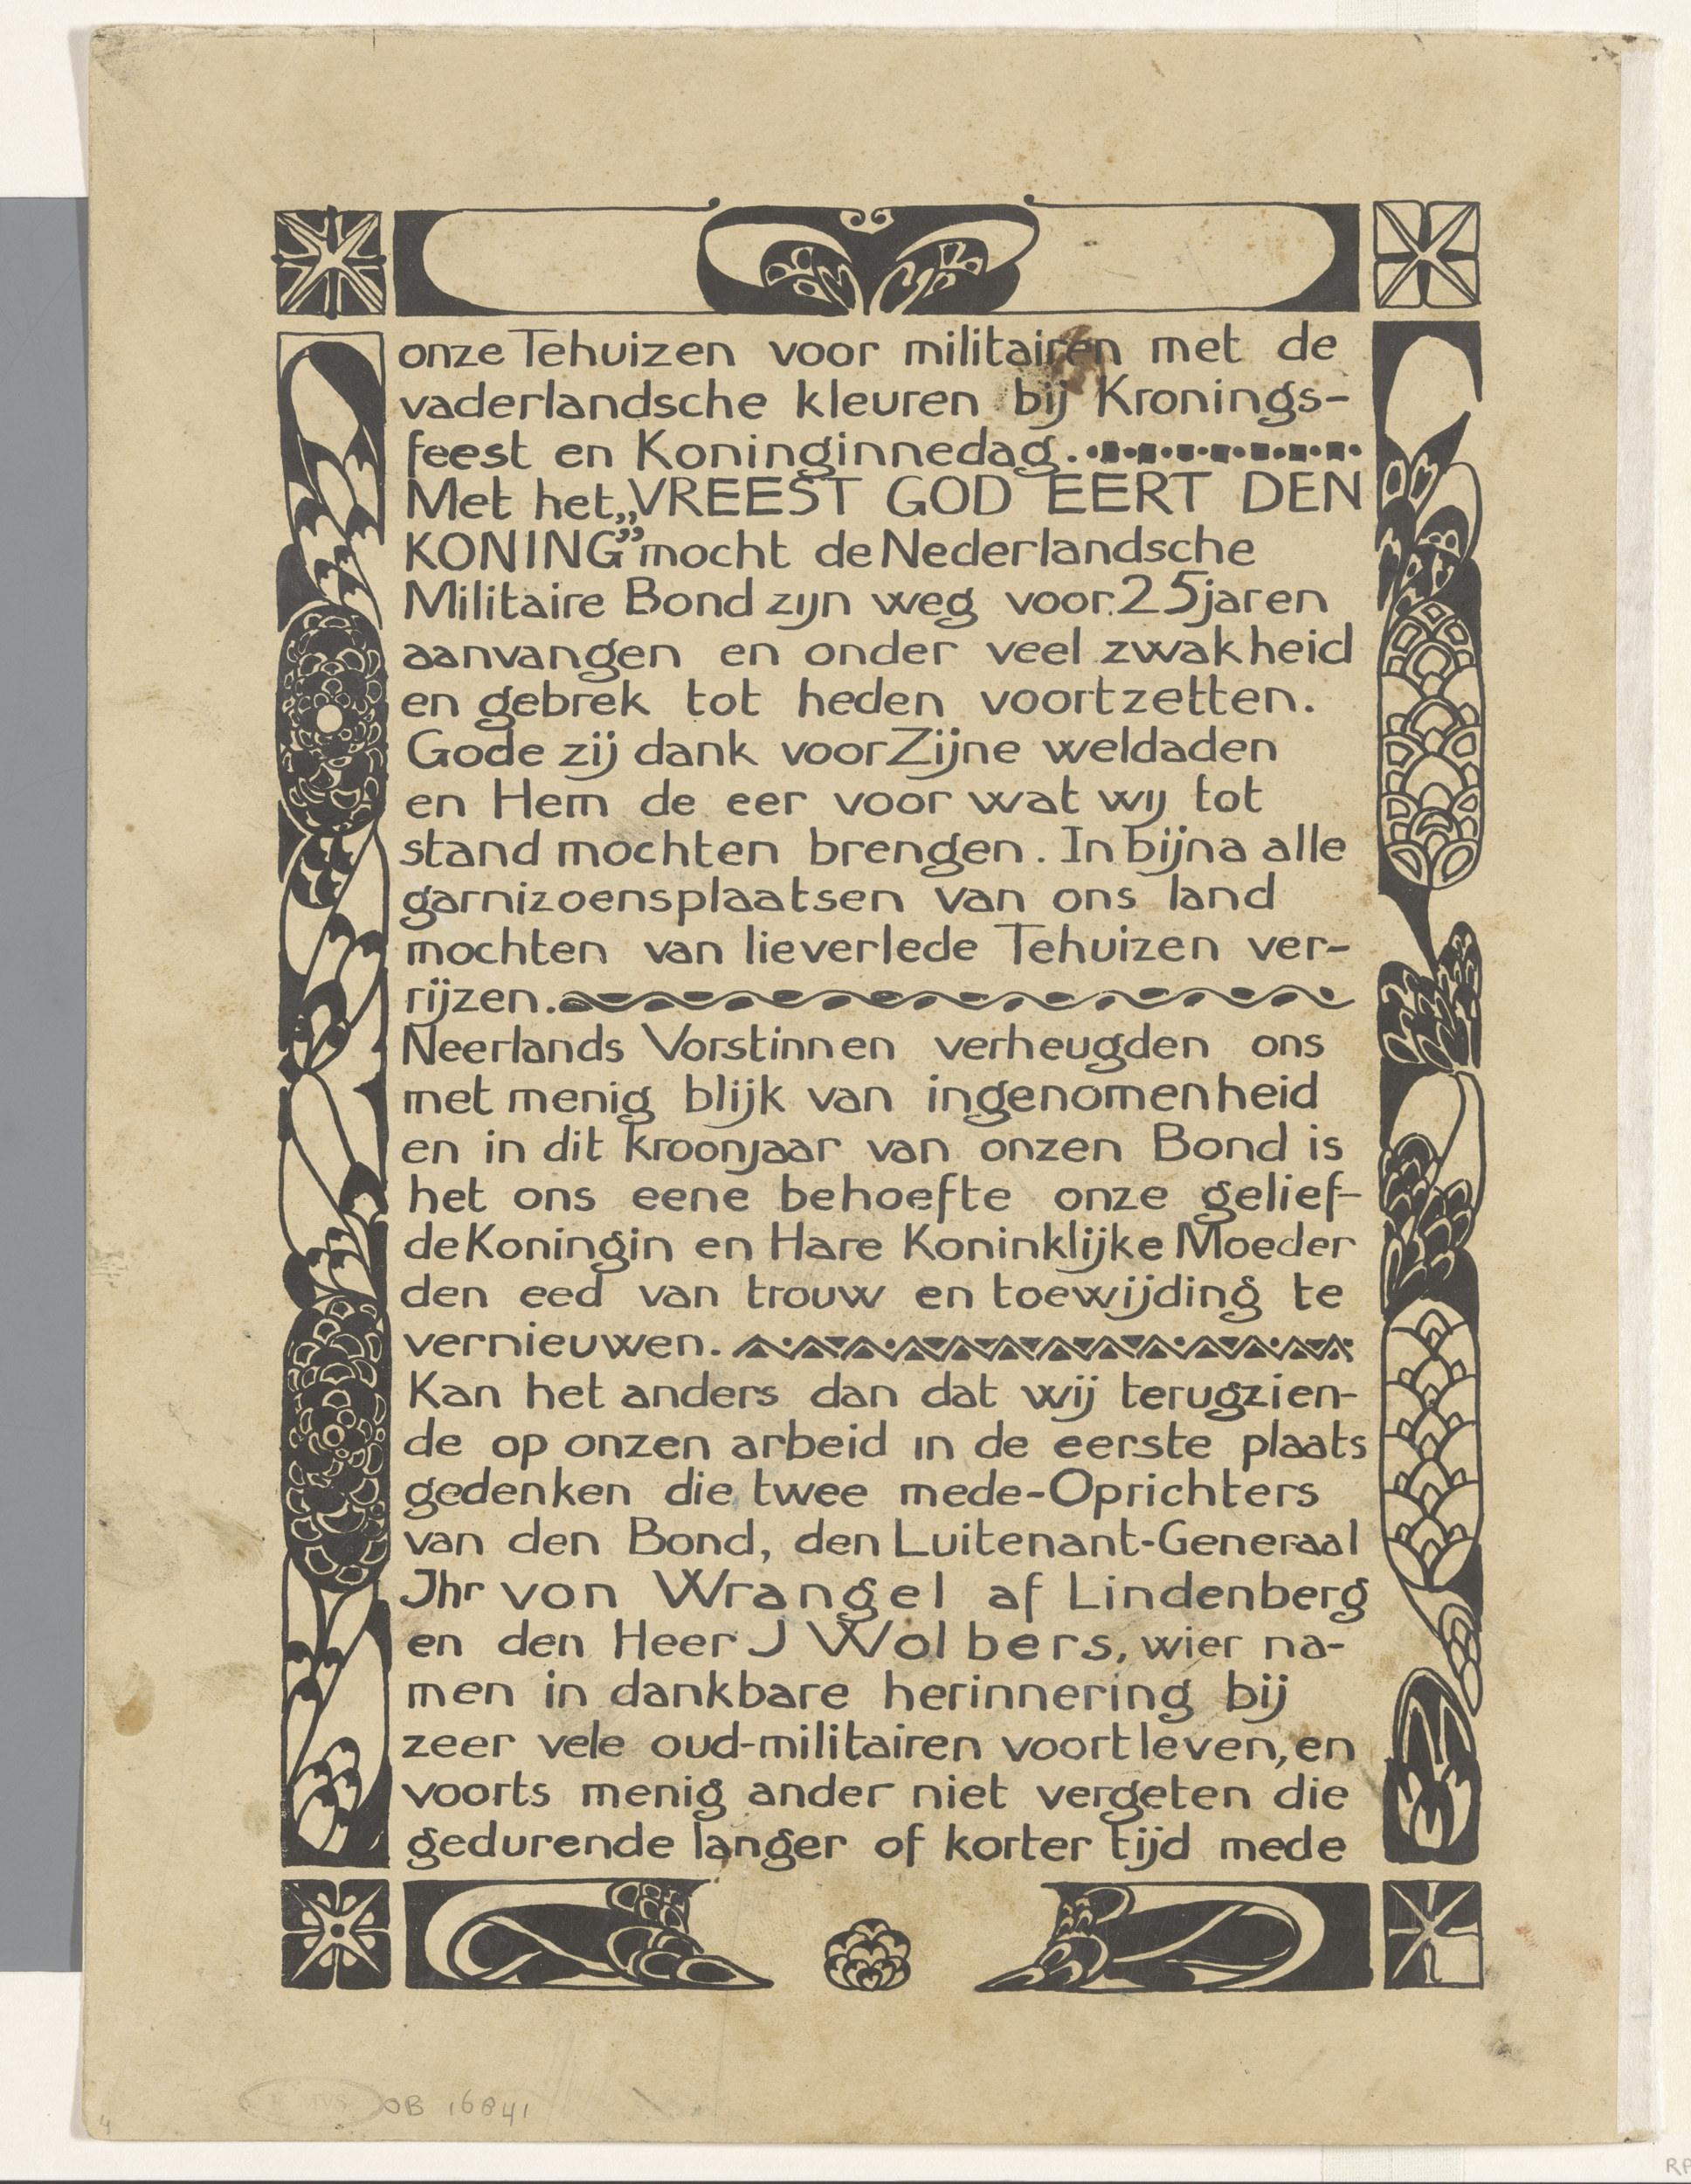 onze Tehuizen voor militairen met de
vaderlandsche kleuren bij Kronings-
feest en Koninginnedag.
Met het „VREEST GOD EERT DEN
KONING” mocht de Nederlandsche
Militaire Bond zijn weg voor 25 jaren
aanvangen en onder veel zwakheid
en gebrek tot heden voortzetten.
Gode zij dank voor Zijne weldaden
en Hem de eer voor wat wij tot
stand mochten brengen. In bijna alle
garnizoensplaatsen van ons land
mochten van lieverlede Tehuizen ver-
rijzen.
Neerlands Vorstinnen verheugden ons
met menig blijk van ingenomenheid
en in dit kroonjaar van onzen Bond is
het ons eene behoefte onze gelief-
de Koningin en Hare Koninklijke Moeder
den eed van trouw en toewijding te
vernieuwen.
Kan het anders dan dat wij terugzien-
de op onzen arbeid in de eerste plaats
gedenken die twee mede-Oprichters
van den Bond, den Luitenant-Generaal
Jhr von Wrangel af Lindenberg
en den Heer J Wolbers, wier na-
men in dankbare herinnering bij
zeer vele oud-militairen voortleven, en
voorts menig ander niet vergeten die
gedurende langer of korter tijd mede
OB 16841
4